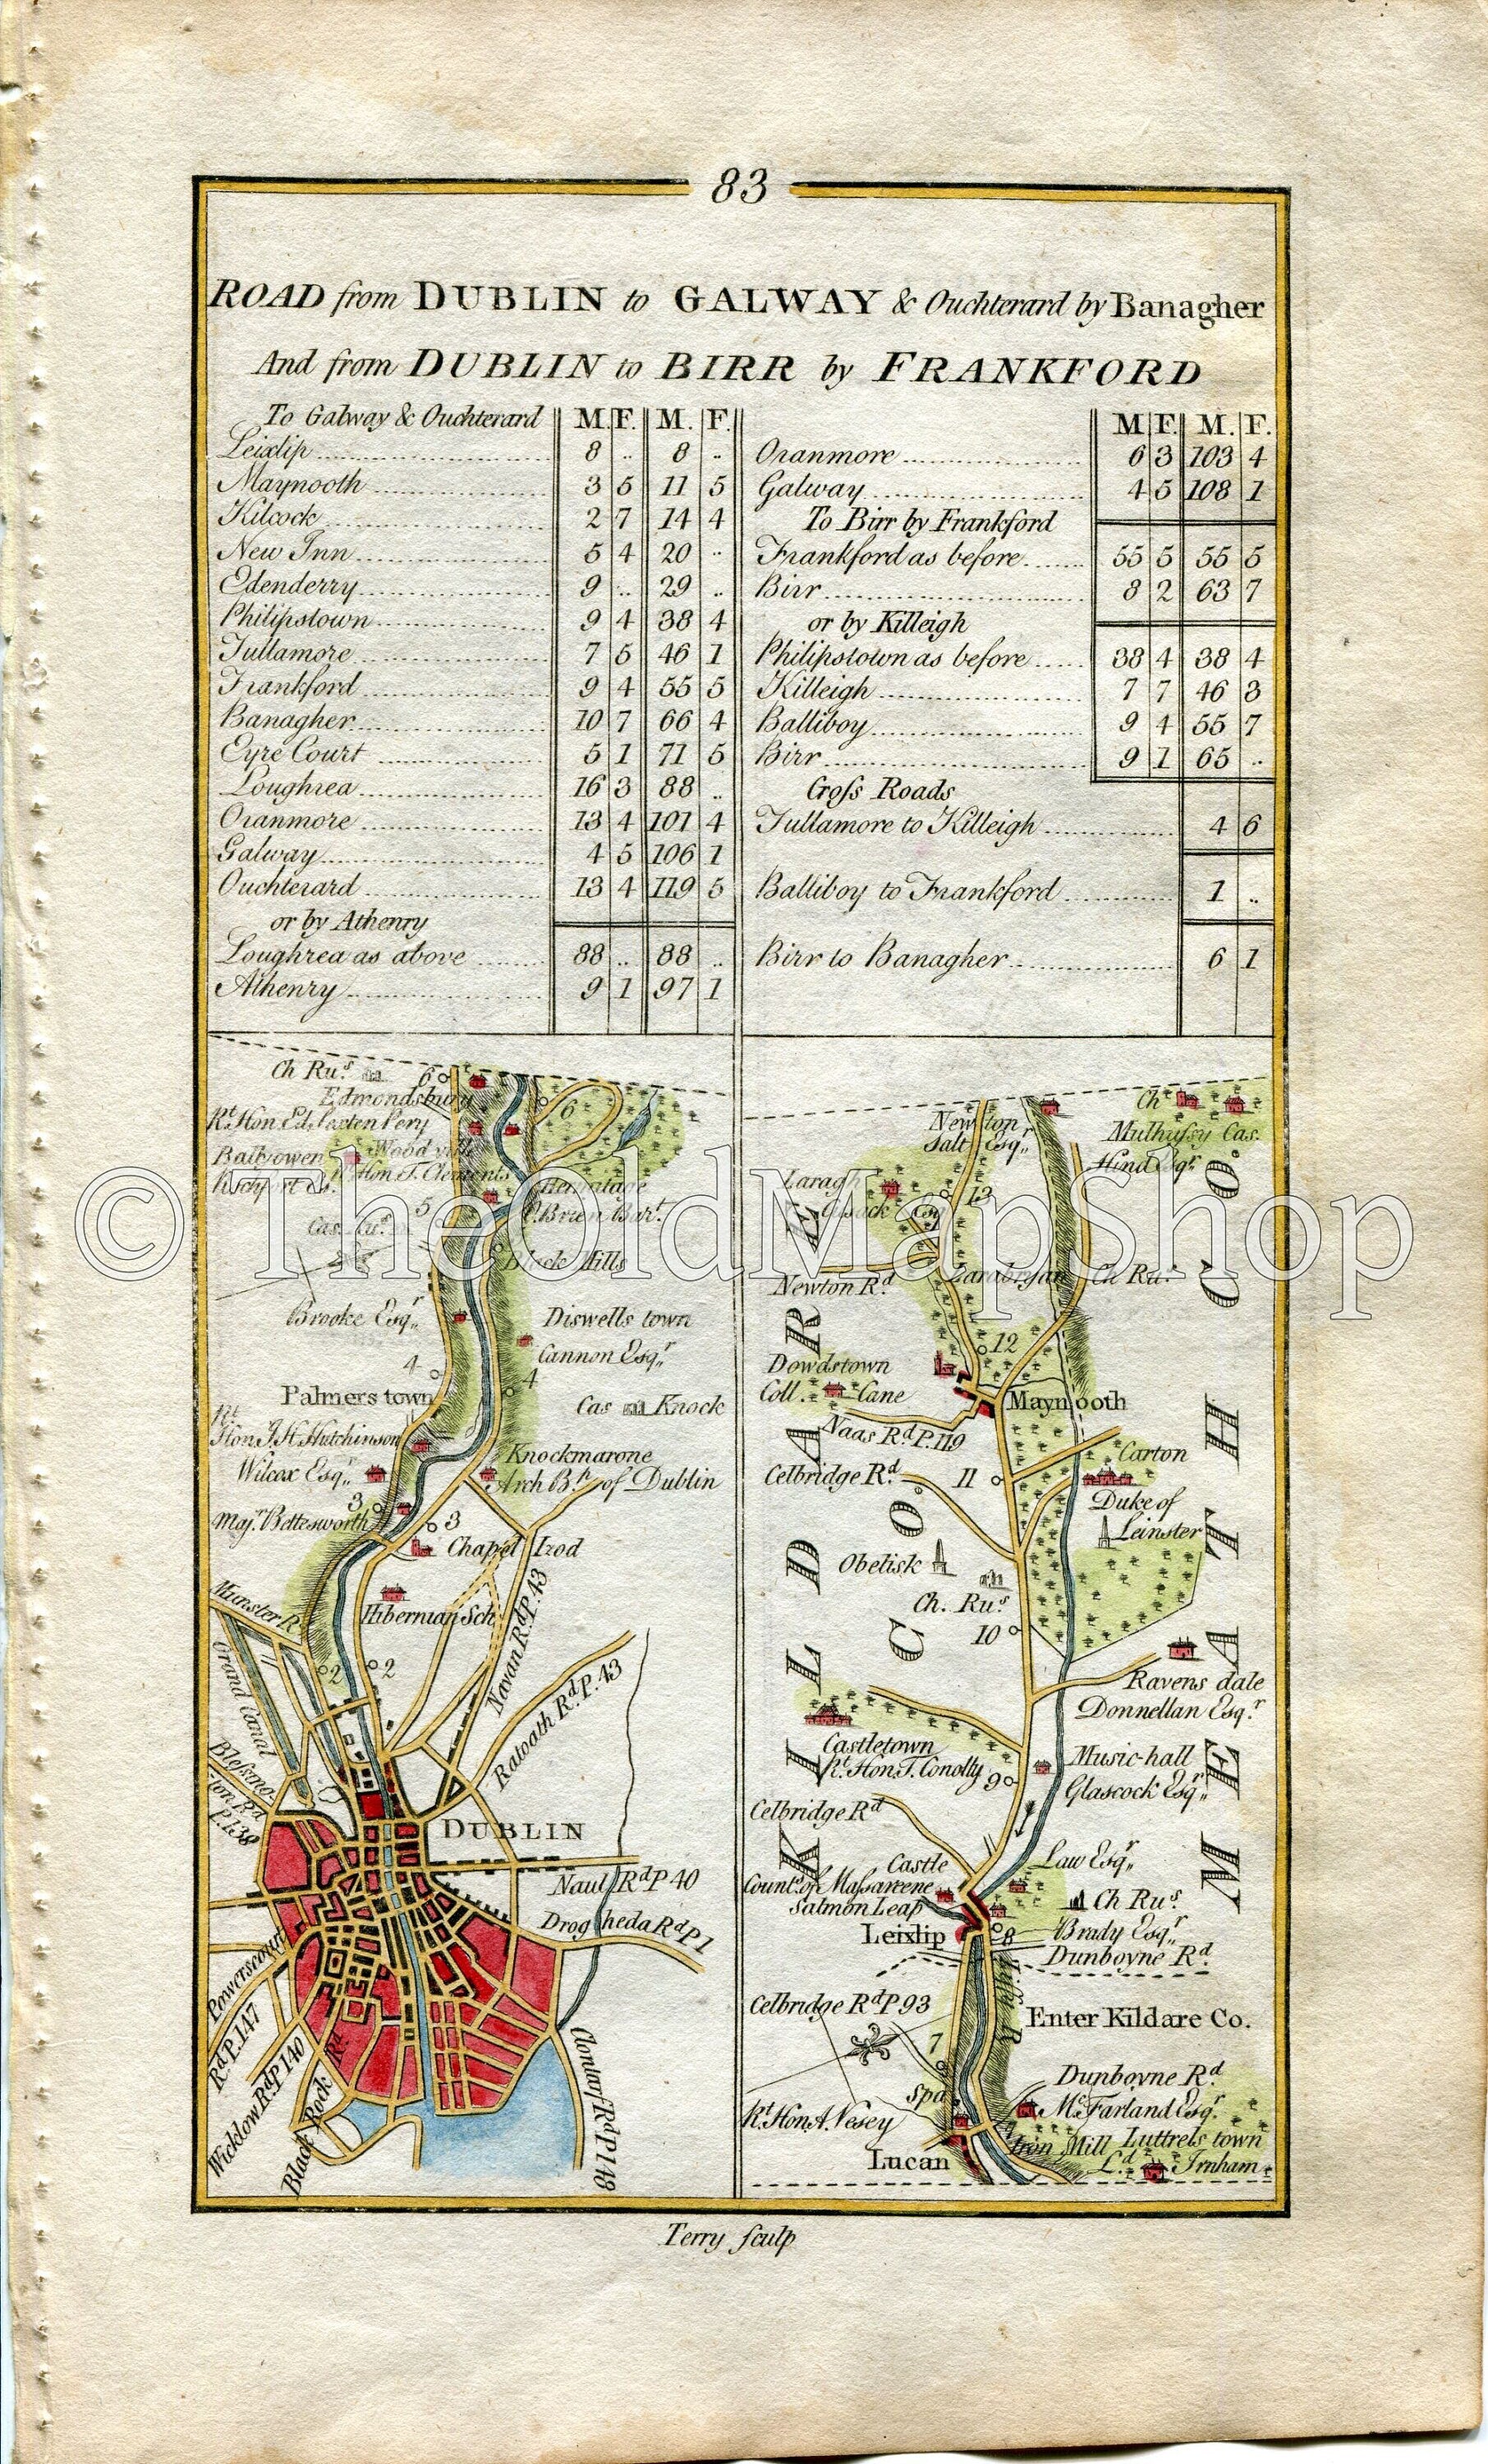 83
ROAD from DUBLIN to GALWAY & Ouchterard by Banagher
And from DUBLIN to BIRR by FRANKFORD
To Galway & Ouchterard M. F. M. F.
Leixlip 8 .. 8 ..
Maynooth 3 5 11 5
Kilcock 2 7 14 4
New Inn 5 4 20 ..
Edenderry 9 .. 29 ..
Philipstown 9 4 38 4
Tullamore 7 5 46 1
Frankford 9 4 55 5
Banagher 10 7 66 4
Eyre Court 5 1 71 5
Loughrea 16 3 88 ..
Oranmore 13 4 101 4
Galway 4 5 106 1
Ouchterard 13 4 119 5
or by Athenry
Loughrea as above 88 .. 88 ..
Athenry 9 1 97 1
M. F. M. F.
Oranmore 6 3 103 4
Galway 4 5 108 1
To Birr by Frankford
Frankford as before 55 5 55 5
Birr 8 2 63 7
or by Killeigh
Philipstown as before 38 4 38 4
Killeigh 7 7 46 3
Balliboy 9 4 55 7
Birr 9 1 65 ..
Cross Roads
Tullamore to Killeigh 4 6
Balliboy to Frankford 1 ..
Birr to Banagher 6 1
Ch Rus.
6
Edmondsbury
Rt. Hon. Ed. Sexten Pery
6
Woodville
Rt Hon. T. Clements
Ballyowen
Hermitage
O'Brien Bart.
5
Cas. Rus.
Black Hills
Brooke Esqr.
Diswells town
Cannon Esqr.
4
4
Palmers town
Cas Knock
Rt.
Hon. J. H. Hutchinson
Knockmarone
Wilcox Esqr.
Arch Bp. of Dublin
3
Majr. Bettesworth
3
Chapel Izod
Hibernian Sch.
Munster R
Navan Rd. P. 43
Grand Canal
2
2
Ratoath Rd. P. 43
Blessing-
ton Rd
P. 138
DUBLIN
Naul Rd P 40
Drogheda Rd P 1
Powerscourt
Rd P. 147
Wicklow Rd. P 140
Black Rock Rd.
Clontarf Rd P 148
Newton
Salt Esqr.
Ch.
Mulhussy Cas.
Hind Esqr.
Laragh
Cusack Esq
13
Newton Rd.
Larabryan Ch Rus.
12
Dowdstown
Coll. Cane
Maynooth
Naas Rd. P. 119
Carton
Celbridge Rd.
11
Duke of
Leinster
Obelisk
Ch. Rus.
10
Ravens dale
Donnellan Esqr.
Castletown
Rt. Hon. T. Conolly
Music-hall
Glascock Esqr.
9
Celbridge Rd
Castle
Law Esqr.
Counts. of Massareene
Salmon Leap
Ch Rus.
Leixlip
8
Brady Esqr.
Dunboyne Rd.
Celbridge Rd P 93
Liffy R
Enter Kildare Co.
7
Spa
Dunboyne Rd.
McFarland Esqr.
Rt. Hon. A. Vesey
Iron Mill
Luttrels town
Lucan
Ld. Irnham
KILDARE
CO.
MEATH CO.
Terry sculp
© TheOldMapShop